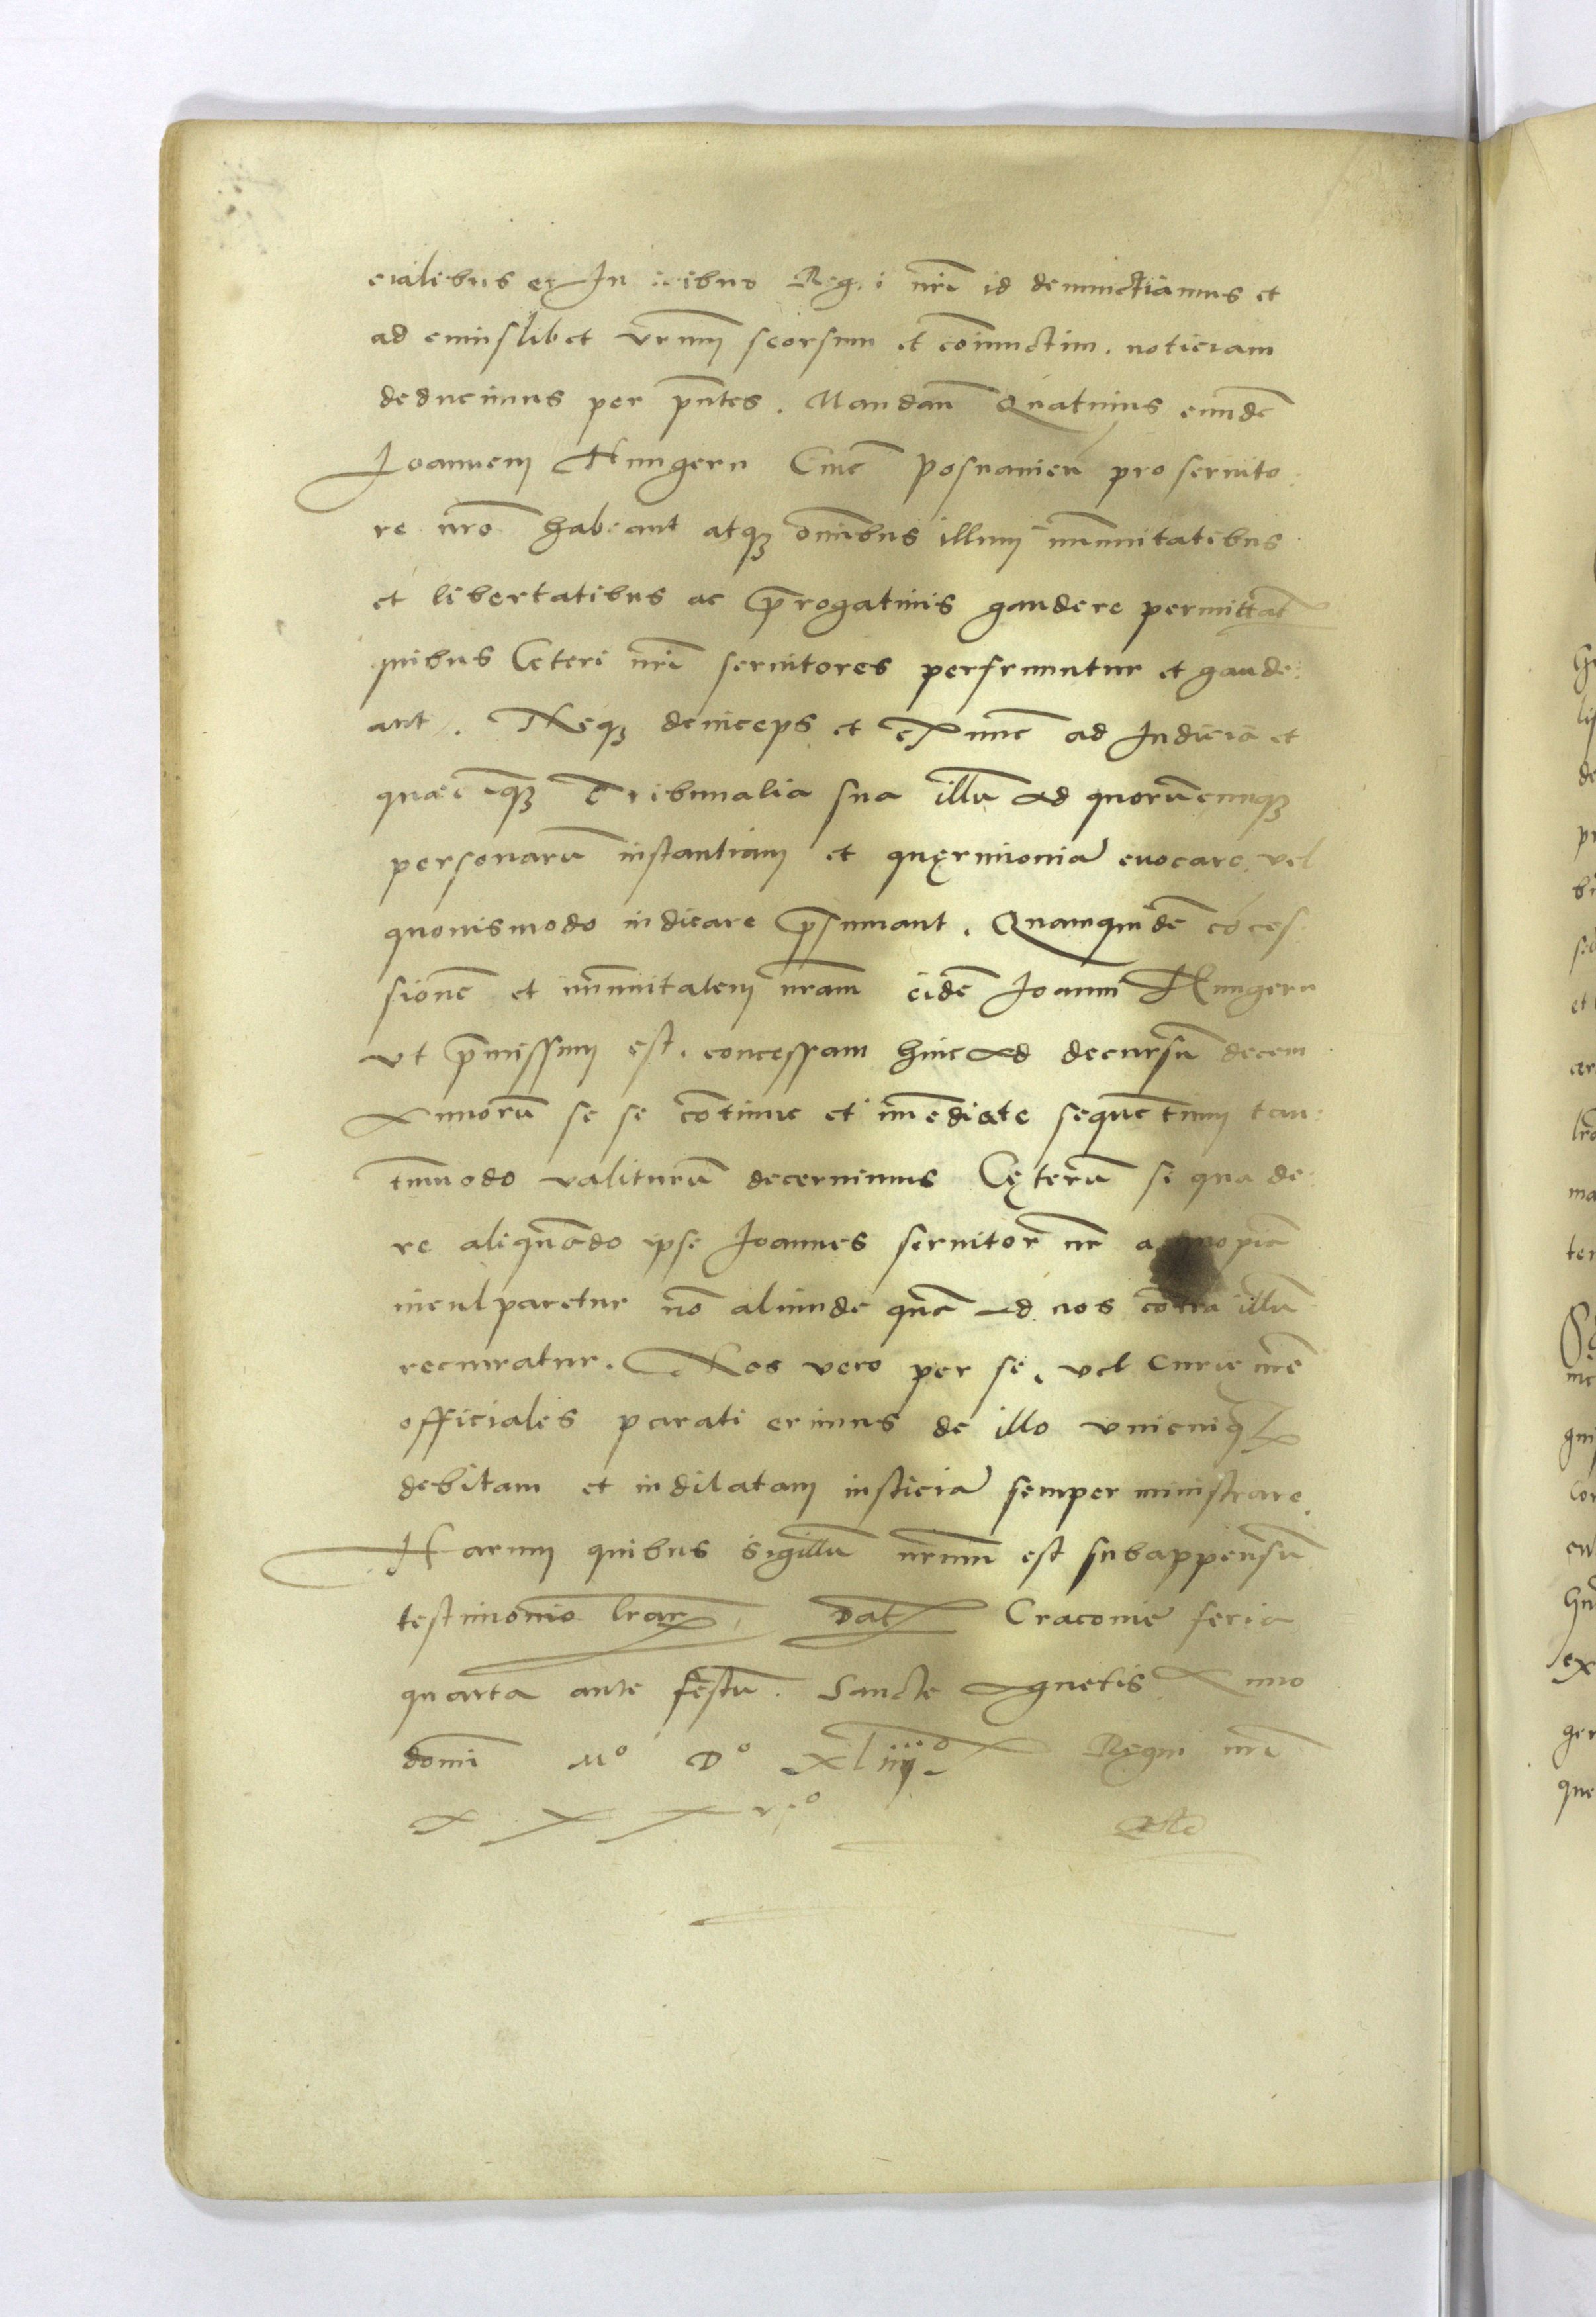 cialibus et In icibus Reg i nrı̄ id denunctiamus et
ad cuiuslibet vrm̄ seorsum et cōiunctim. noticiam
deducimus per pn̄tes. Mandan̄ Quatinus eundē
Joannem Hungern Ciuē posnanien̄ pro seruito:
re nrō habeant atqꝫ om̄ibus illum imm̄unitatibus
et libertatibus ac p̄rogatiuis gaudere permittāt
quibus Ceteri nrı̄ seruitores perfruuntur et gaude:
ant. Neqꝫ deinceps et ex nūc ad Judicia et
quæcūqꝫ Tribunalia sua illū ad quorūcunqꝫ
personarū instantiam et quęrimoniā euocare, vel
quouismodo iudicare p̄sumant. Quamquidē cōces:
sionē et imm̄unitatem nrām eidē Joannı̄ Hungern
vt p̄missum est. concessam hinc ad decursū decem
Annorū se se cōtinue et im̄ediate sequētium tan:
tum̄odo valiturā decernimus Cęterū si qua de:
re aliquādo ipse Joannes seruitor nr̄ a
inculparetur nō aliunde quā ad nos cōtra illū
recurratur. Nos vero per se, vel Curie nrē
officiales parati erimus de illo vnicuiqꝫ
debitam et indilatam iusticiā semper ministrare.
Harum quibus sigillū nrūm est subappensū
testimonio lrarꝫ, Datꝫ Cracouie feria
quarta ante festū. Sancte Agnetis Anno
domı̄ Mº Dº xliiijº Regni nrı̄
xxxvº